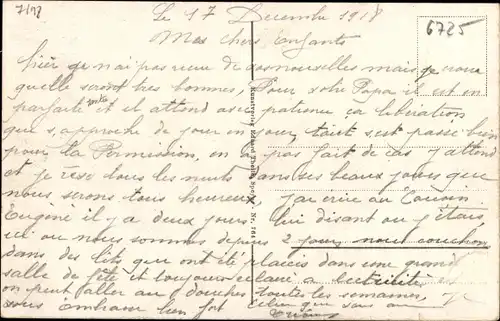 7198
Le 17 Decembre 1918
6725
Mes chers Enfants
hier je n'ai pas recue de vos nouvelles mais je crois
quelle seront tres bonnes, Pour votre Papa il est en
parfaite santé et il attend avec patience ça libération
que s'approche de jour en jour, tout s'est passé bien
pour la Permission, on a pas fait de cas j'attend
et je rève tous les nuits dans ses beaux jours que
nous serons tous heureux j'ai ecrie au Cousin
Eugène il y a deux jours lui disant ou j'étais,
ici ou nous sommes depuis 2 jours nous couchons
dans des lits que ont été placés dans une grand
salle de fête et toujours eclaire a lectricité et
on peut aller au douches toutes les semaines, je
vous embrasse bien fort celui que vous